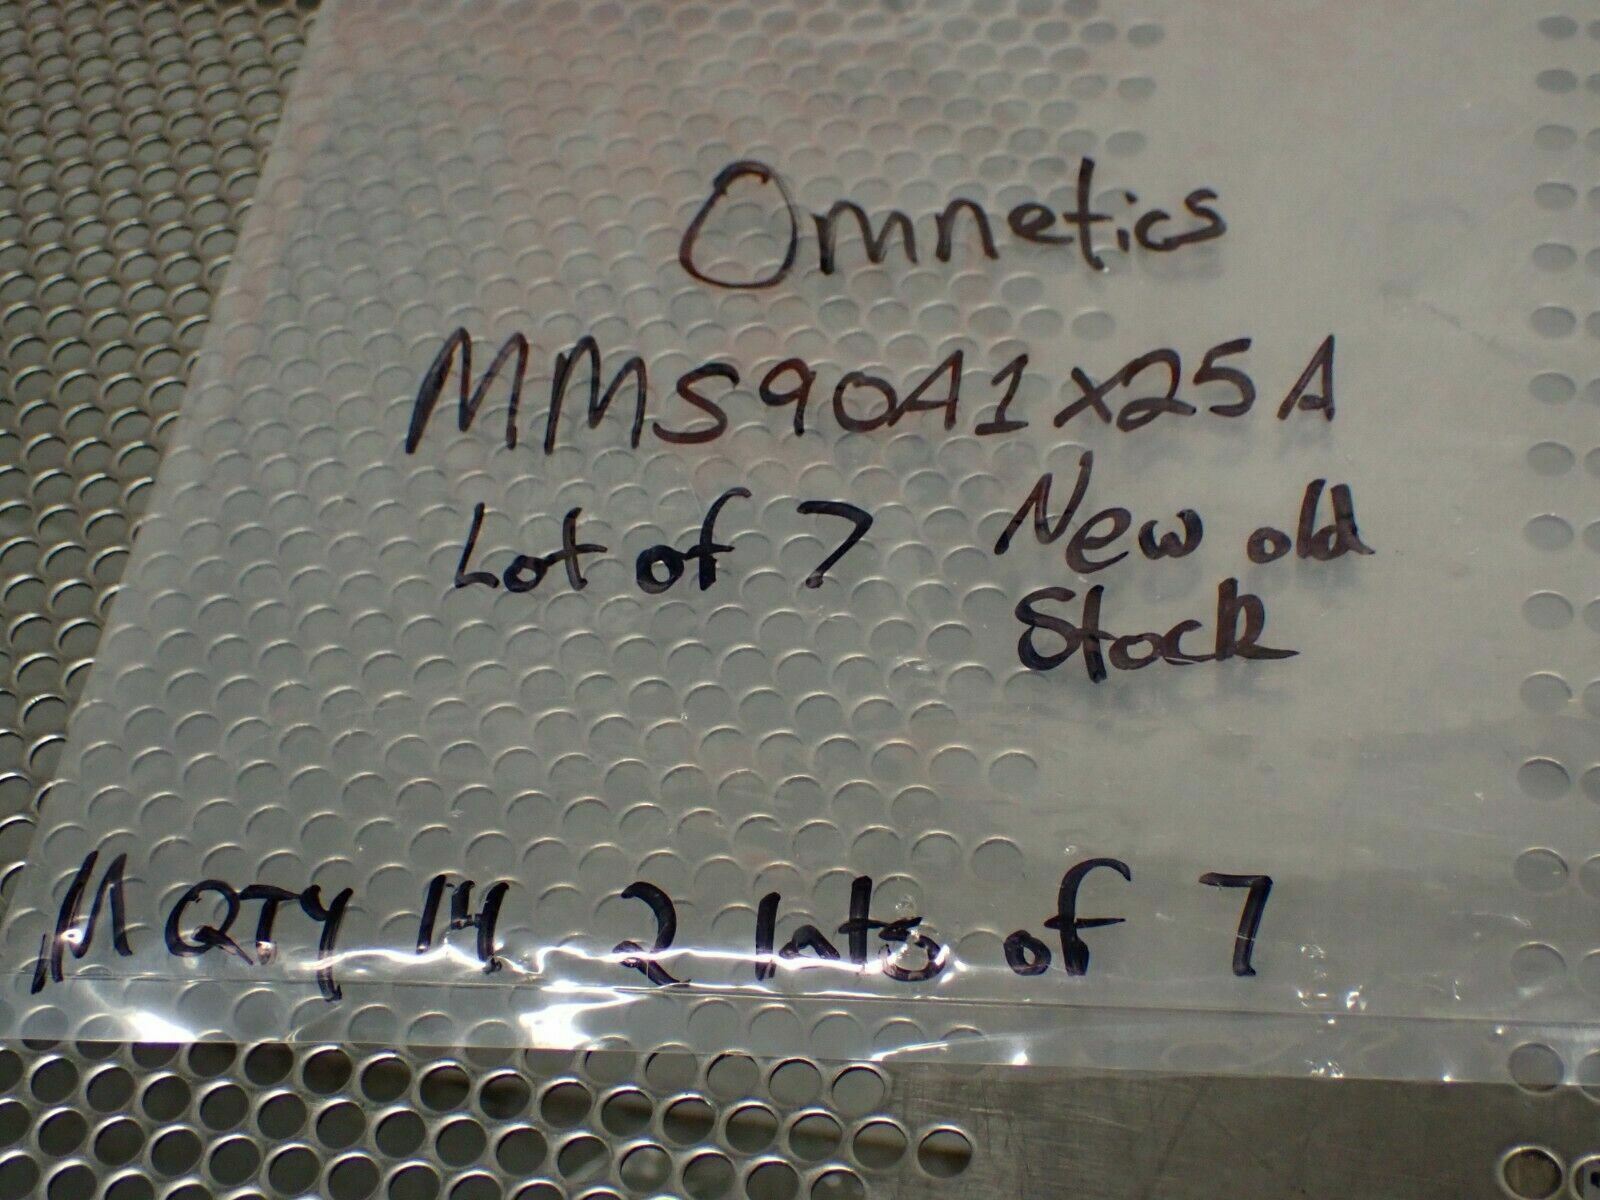 Omnetics
MMS90A1X25A
Lot of 7 New old
Stock
M QTY 14 2 lots of 7